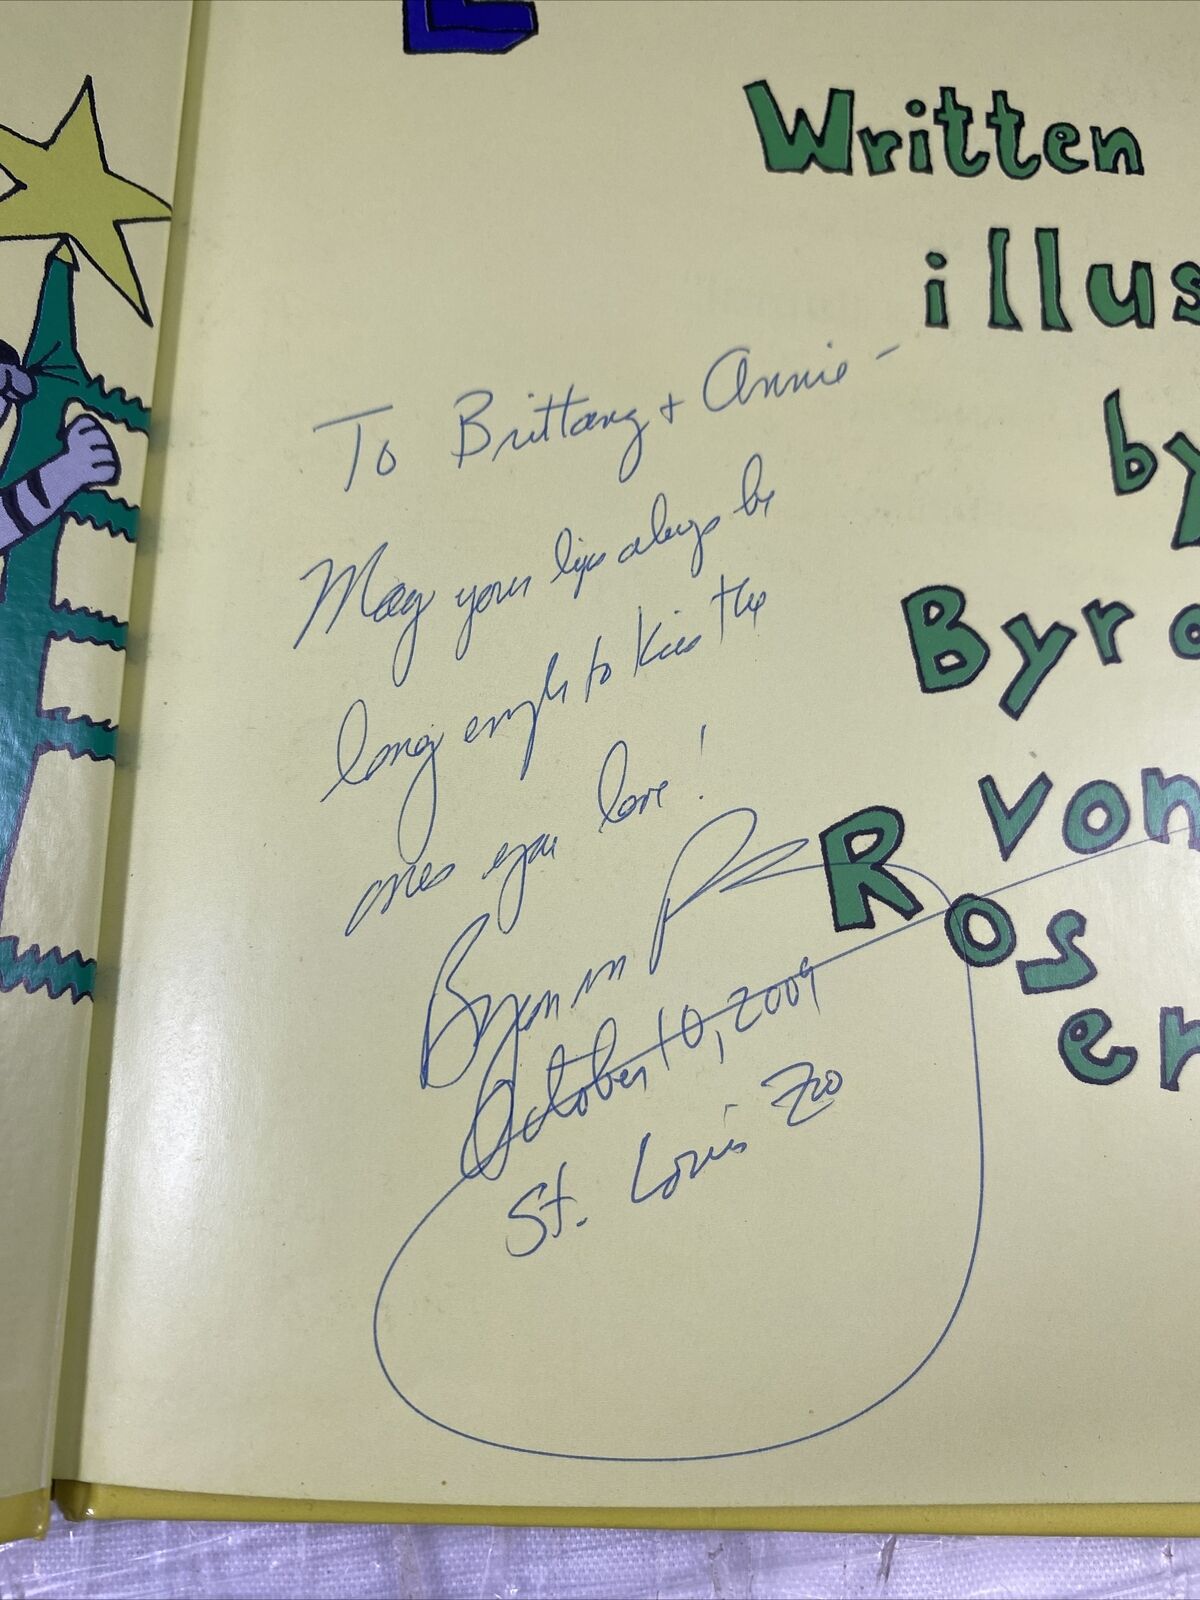 Written
illus
by
Byro
von
Ros
er
To Brittany + Annie -
May your lips always be
long enough to kiss the
ones you love!
Byron von R
October 10, 2009
St. Louis Zoo